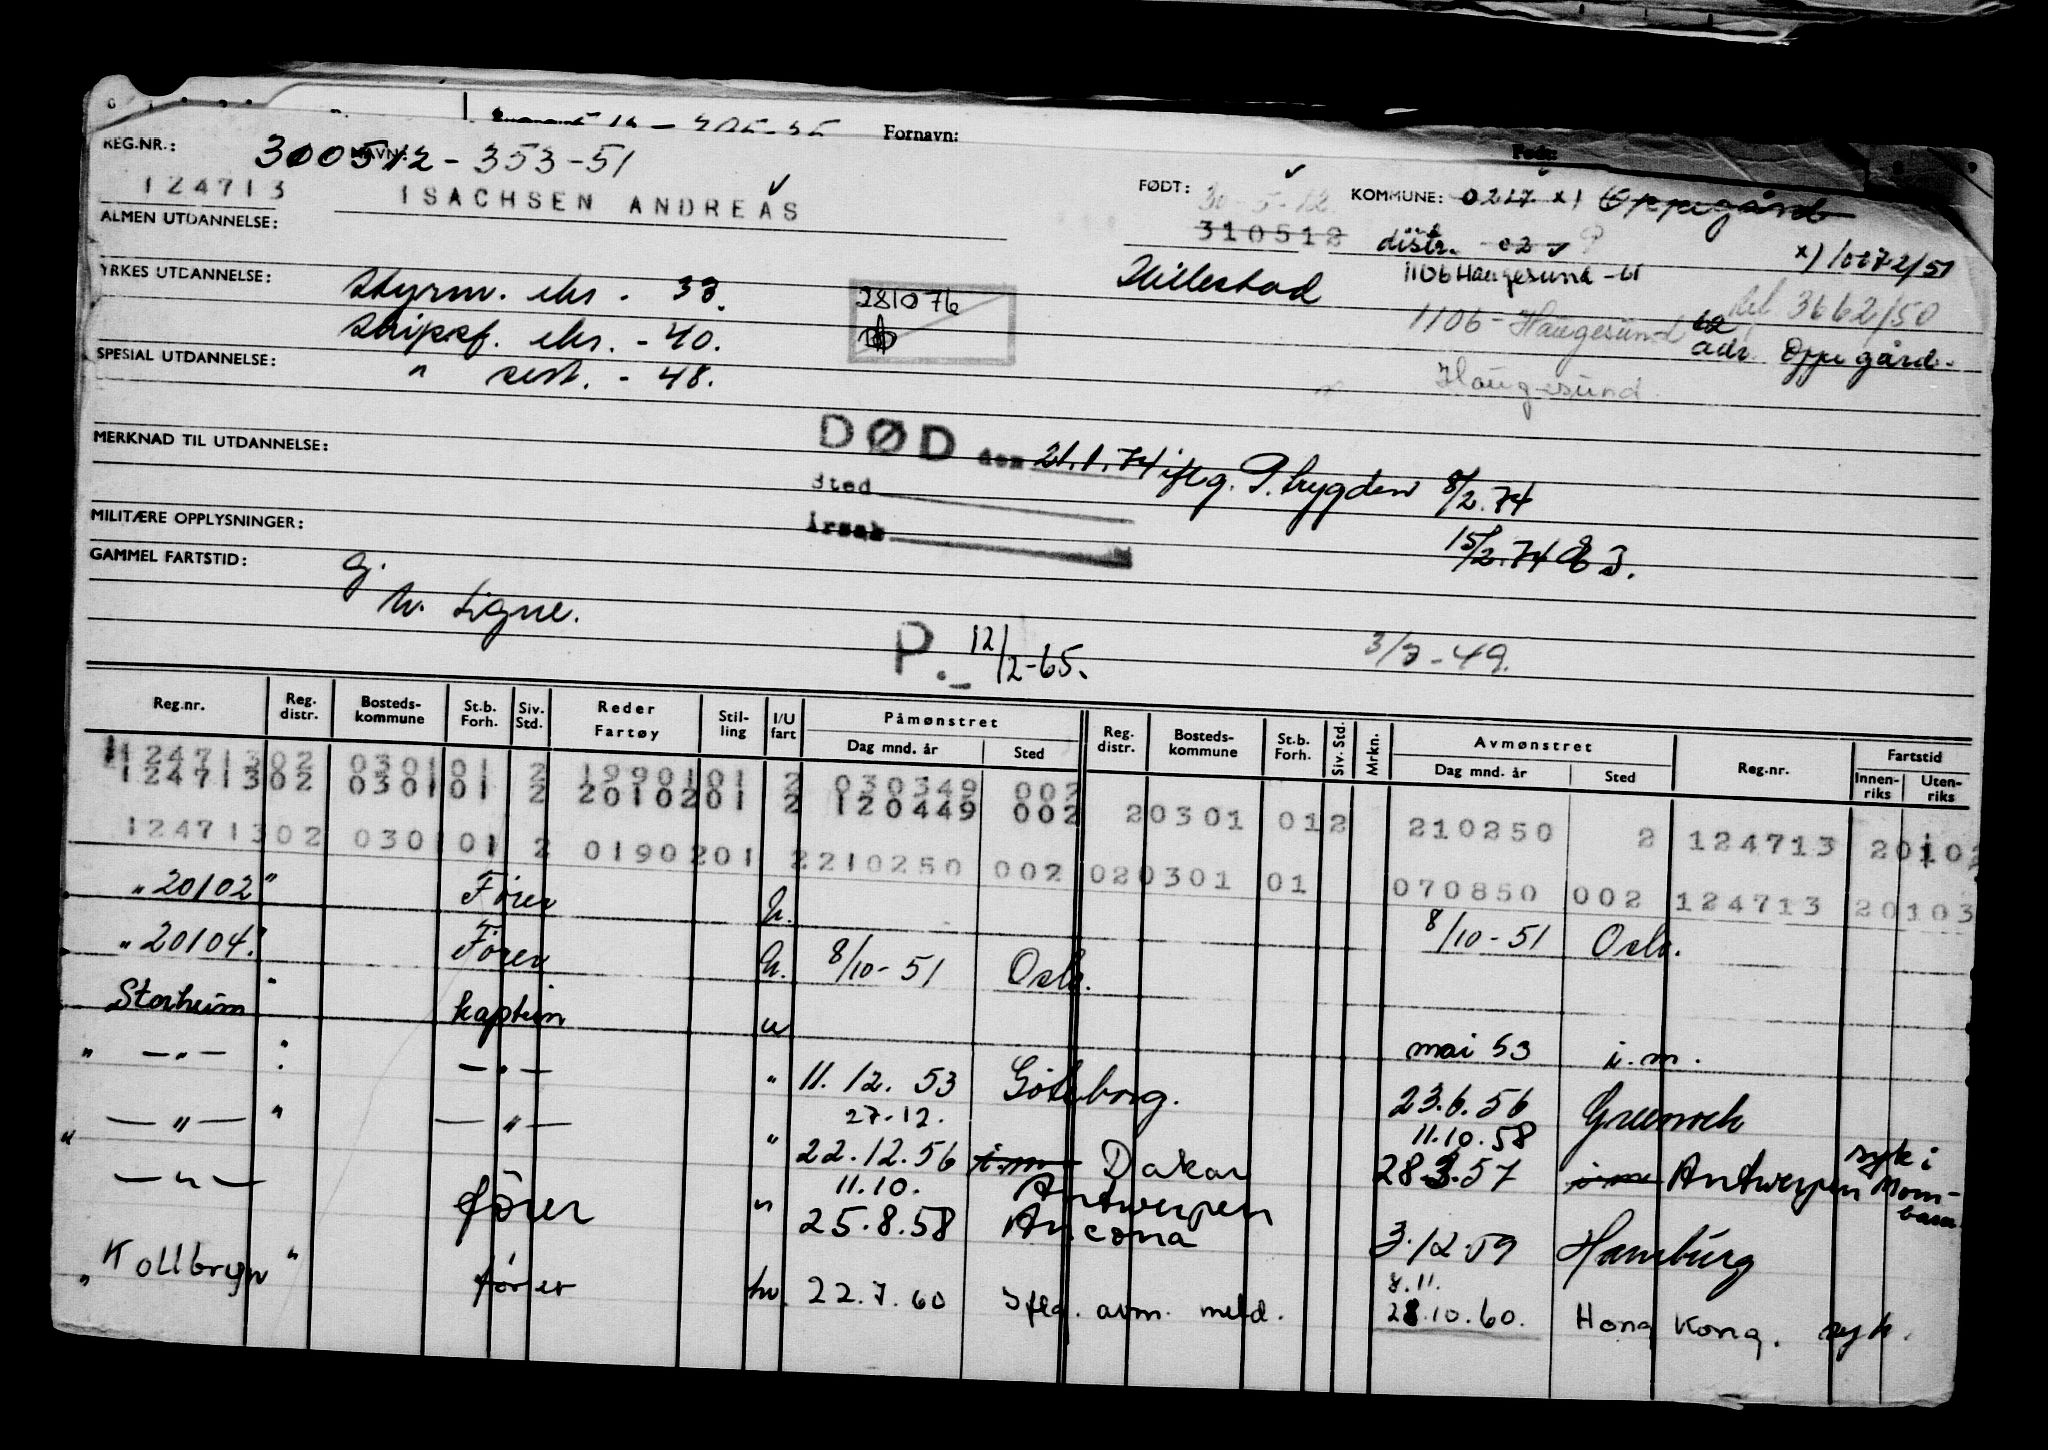 Fornavn:
REG.NR.: 300512 - 353 - 51
124713 ISACHSEN ANDREAS
FØDT: 30-5-12 KOMMUNE: 0217 x) Oppegård
310512 distr. 02 x) 1007-2/51
ALMEN UTDANNELSE:
YRKES UTDANNELSE: Styrm. eks. - 33. 281076 Hillestad 1106 Haugesund - 61
1106 - Haugesund del 3662/50
Skipsf. eks. - 40. adr. Oppegård.
SPESIAL UTDANNELSE: " sert. - 48. Haugesund
MERKNAD TIL UTDANNELSE:
DØD den 21.1.74 iflg. P. trygden 8/2.74
Sted
Årsak 15/2.74
MILITÆRE OPPLYSNINGER:
GAMMEL FARTSTID: Gj.
h. Signe.
P. 12/2-65. 3/3-49.
Reg.nr. Reg. distr. Bosteds- kommune St.b. Forh. Siv. Std. Reder Fartøy Stil- ling I/U fart Påmønstret Reg. distr. Bosteds- kommune St.b. Forh. Siv. Std. Mrkn. Avmønstret Reg.nr. Fartstid
Dag mnd. år Sted Dag mnd. år Sted Innen- riks Uten- riks
124713 02 0301 01 2 19901 01 2 030349 002
124713 02 0301 01 2 20102 01 2 120449 002 20301 01 2 210250 2 124713 20102
124713 02 0301 01 2 01902 01 2 210250 002 02 0301 01 070850 002 124713 20103
"20102" Fører u. 8/10-51 Oslo.
"20104" Fører u. 8/10-51 Oslo.
Storheim " kaptein u mai 53 i.m.
" — " — " — " — " 11.12.53 Göteborg. 23.6.56 Greenock
— " — " — " — 27.12. 11.10.58
" " 22.12.56 i.m. Dakar 28.3.57 i.m. Antwerpen syk i Mom- basa
— " — fører " 11.10. Antwerpen
25.8.58 Ancona 3.12.59 Hamburg
" Kollbryn " fører u. 22.7.60 Iflg. avm. meld. 8.11.
28.10.60. Hong Kong. syk.